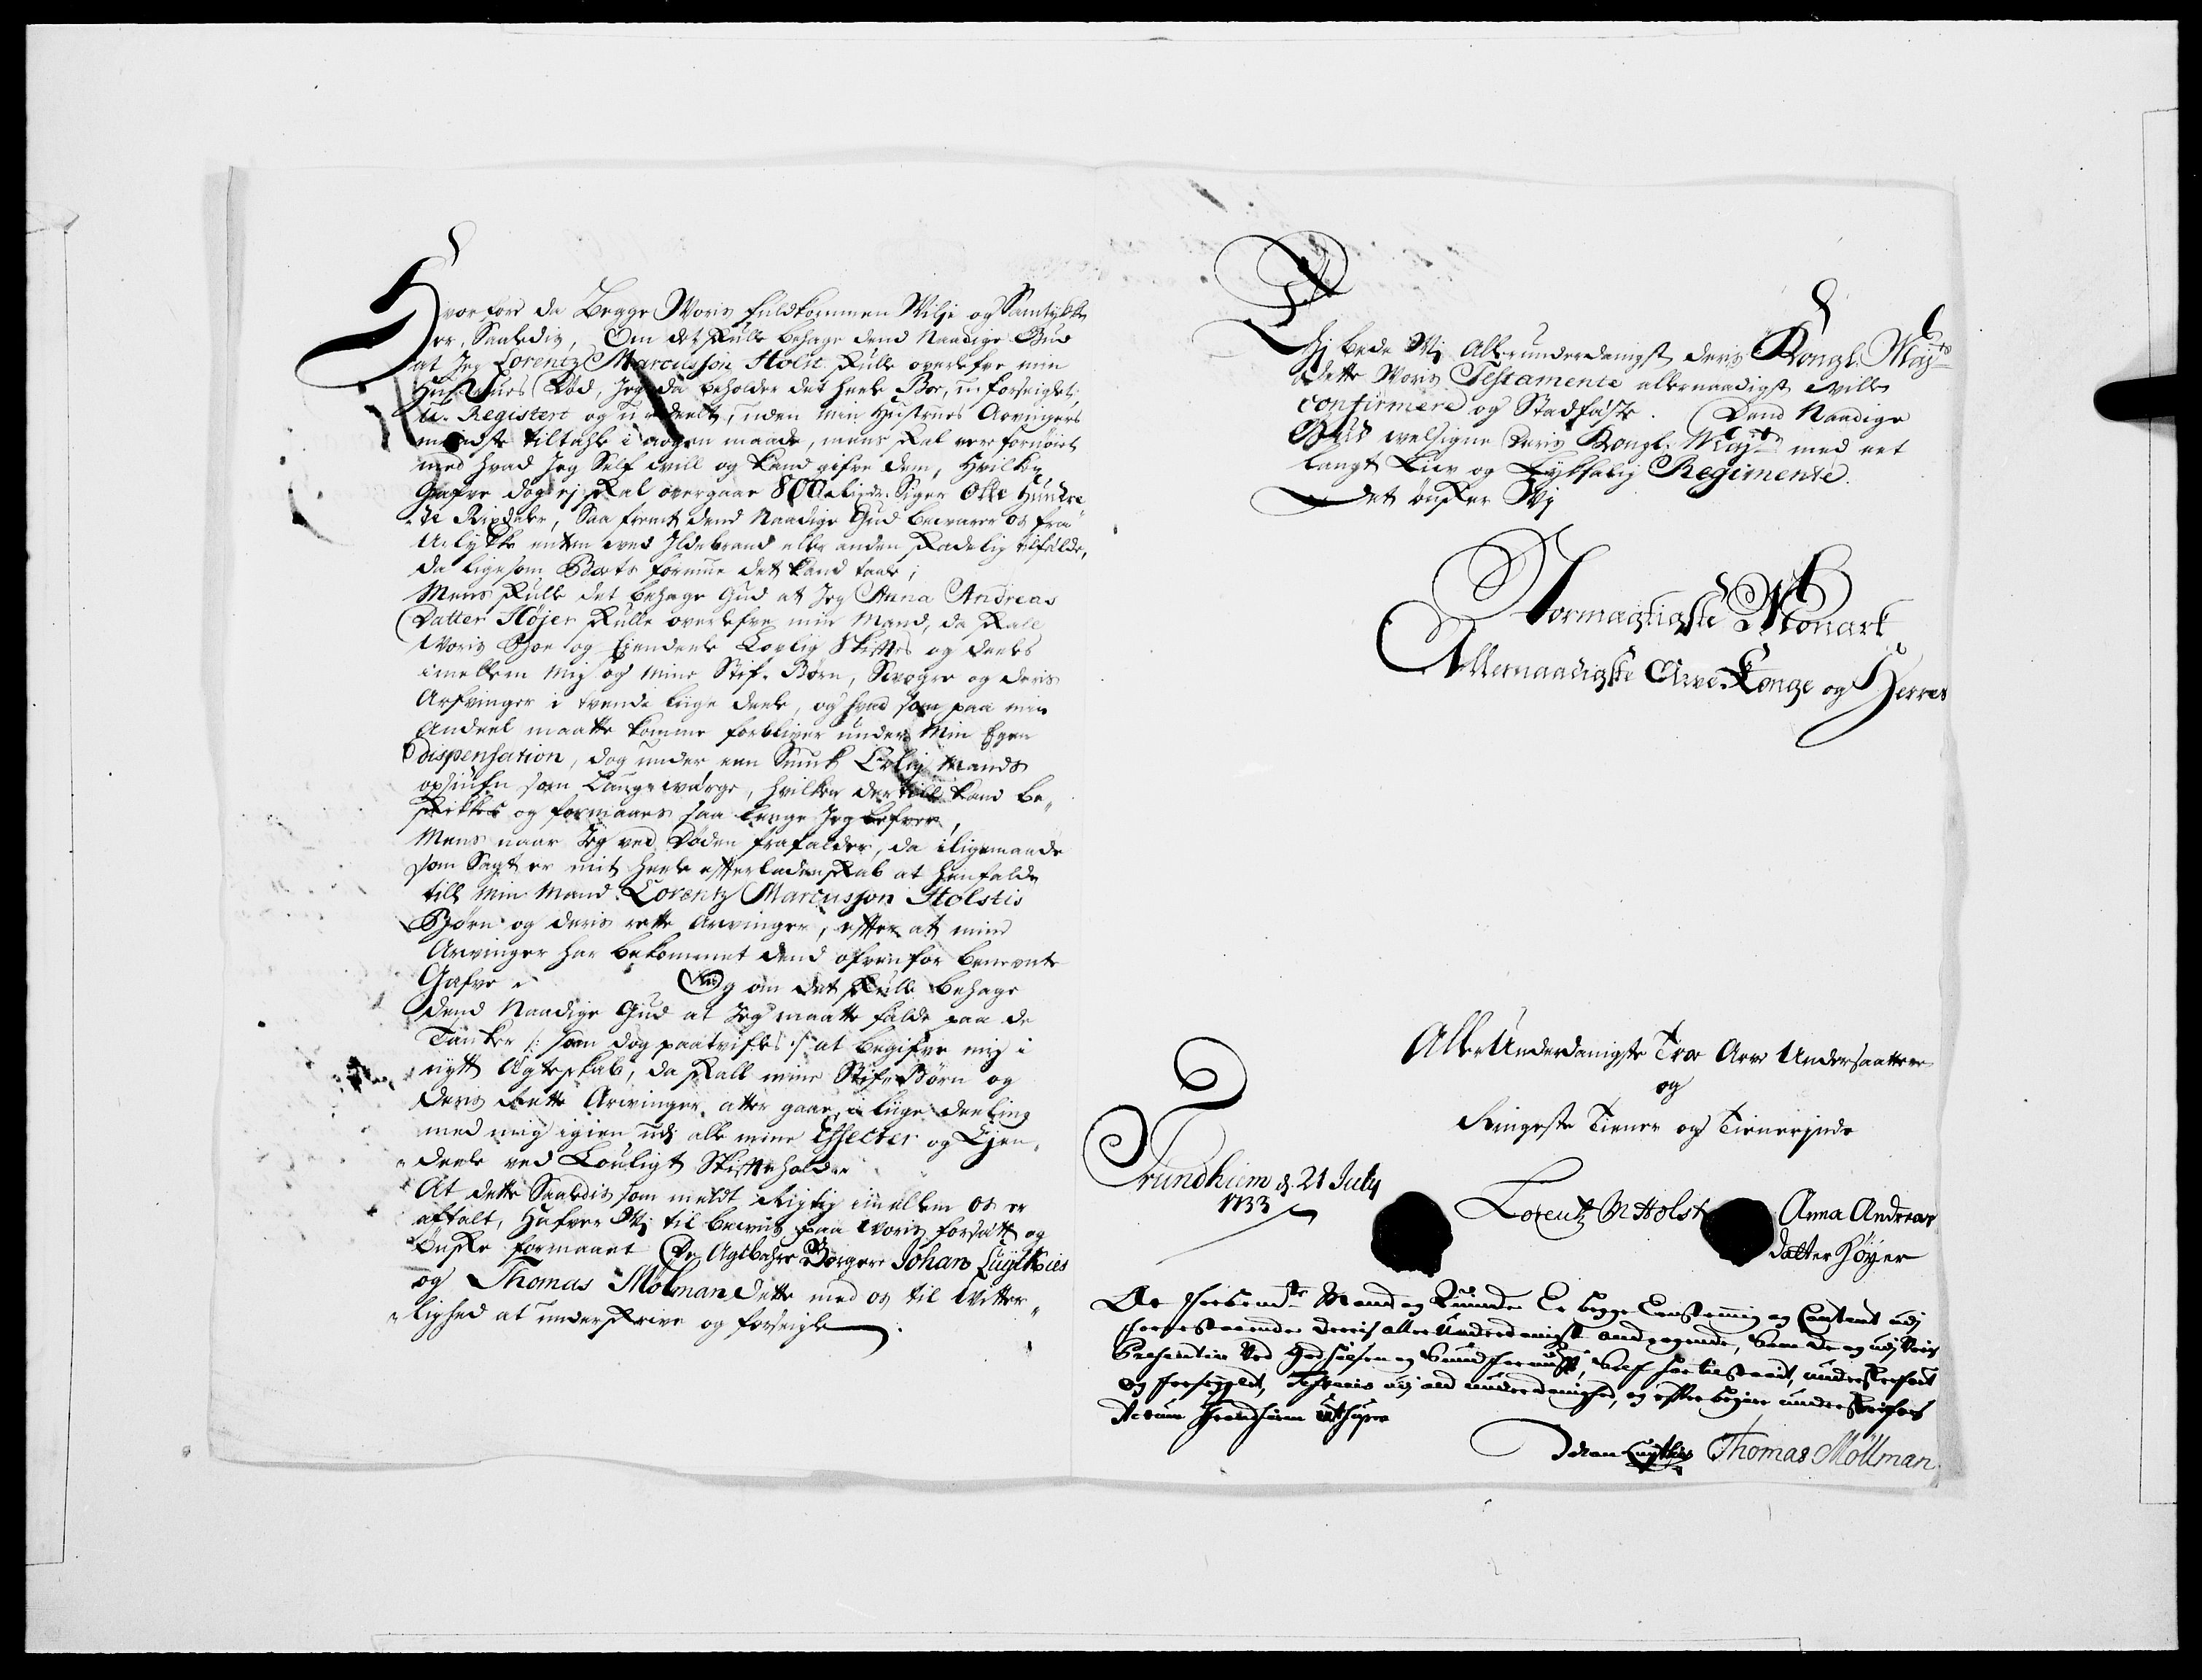 Hvorfore da Begge Woris fuldkommen Wilje og Samtykke
er, Saaledis, Om det skulle behage dend Naadige Gud
at Jeg Lorentz Marcussøn Holst skulle overlefve min
Hustrues Død, Jeg da beholder det heele Boe, u-forseiglet,
U-Registert og u-deelt, uden min Hustrues Arvingers
mindste tiltahle i nogen maade, mens skal vere fornøiet
med hvad Jeg Self will og kand gifve dem, Hvilken
Gafve dog ej skal overgaae 800 Rixdr. Siger Otte Hundre-
de Rixdaler, Saa fremt dend Naadige Gud bevarer os fra
U-lykke enten ved Ildebrand eller anden skadelig tilfælde,
da ligesom Boets formue det kand taale;
Mens skulle det behage Gud at Jeg Anna Andreas
Datter Høÿer skulle overlefve min Mand, da skall
Woris Boe og Eiendeele Lovlig Skiftes og deeles
imellem mig og mine Stif-Børn, Svogre og deris
Arfvinger i tvende liige deele, og hvad som paa min
Andeel maatte komme forbliver under Min Egen
dispensation, dog under een Smuk Erlig Mands
opsiuen som Laugewærge, hvilken dertill kand be-
skikkes og formaaes saa lenge Jeg lefver,
Mens naar Jeg ved Døden frafalder, da iligemaade
som Sagt er mit heele efterladenskab at henfalde
till min Mand Lorentz Marcussøn Holstis
Børn og deris rette Arvinger, efter at mine
Arvinger har bekommet dend ofvenfor benevnte
Gafve. Og om det skulle behage
dend Naadige Gud at Jeg maatte falde paa de
Tanker /: som dog paatvifles :/ at begifve mig i
nytt Ægteskab, da skall mine Stif-Børn og
deris Rette Arvinger atter gaae i liige deeling
med mig igien udj alle mine Effecter og Ejen-
deele ved Louligt Skifteholder
At dette Saaledis som meldt Rigtig imellem os er
aftalt, Hafver Wj til beviis paa Woris forsætt og
Ønske formaaet De Agtbahre Borgere Johan Luÿtkies
og Thomas Mølman dette med os til Witter-
lighed at underskrive og forseigle.
Thj bede Wj Allerunderdanigst deris Kongl. Mayts
dette Woris Testamente allernaadigst wille
confirmere og Stadfæste. Dend Naadige
Gud velsigne Deris Kongl. Mayt med eet
langt Liiv og Lyksalig Regimente.
Det ønsker Wj
Stormægtigste Monark
Allernaadigste Arve-Konge og Herres
AllerUnderdanigste Troe Arve Undersaattere
og
Ringeste Tiener og Tienerjnde
Trundhiem d. 21 July
1733
Lorentz M Holst Anna Andreas
datter Høÿer
At forbemte Mand og Quinde Er begge Eenstemig og Content udj
forrestaaende dereis aller Underdanigst andragende, Som de og udj Voris
Presentie Ved god helsen og Sund fornuft, Self har tilstaaet, underskrefvet
og forseiglet, Testeris udj ald underdanighed, og efter begier underskrifves
Actum Trondhiem ut supra
Johan Luÿtkies Thomas Möllman